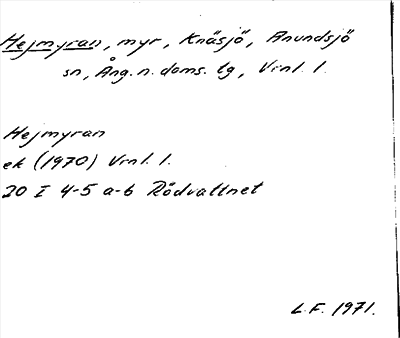 Hejmyran, myr, Knäsjö, Anundsjö
sn, Ång. n. doms. tg, Vrnl. l.
Hejmyran
ek (1970) Vrnl. l.
20 I 4-5 a-b Rödvattnet
L.F. 1971.